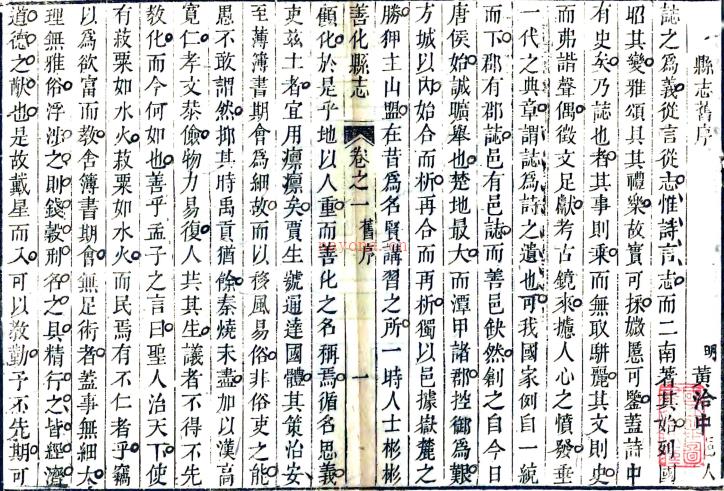 縣志舊序
明 黃洽中 邑人
誌之爲義從言從志惟詩言志而二南著其始列國
昭其變雅頌具其禮樂故實可採媺慝可鑒蓋詩中
有史矣乃誌也者其事則乘而無取駢麗其文則史
而弗諧聲偶徵文足獻考古鏡來攄人心之憤發垂
一代之典章謂誌爲詩之遺也可我國家例自一統
而下郡有郡誌邑有邑誌而善邑缺然創之自今日
唐侯始誠曠舉也楚地最大而潭甲諸郡控御爲艱
方城以內始合而析再合而再析獨以邑據嶽麓之
勝狎主山盟在昔爲名賢講習之所一時人士彬彬
善化縣志 卷之一 舊序 一
顧化於是乎地以人重而善化之名稱焉循名思義
吏茲土者宜用凛凛矣賈生號通達國體其策治安
至薄簿書期會爲細故而以移風易俗非俗吏之能
愚不敢謂然抑其時禹貢猶餘秦燒未盡加以漢高
寬仁孝文恭儉物力易復人共其生議者不得不先
教化而今何如也善乎孟子之言曰聖人治天下使
有菽粟如水火菽粟如水火而民焉有不仁者乎竊
以爲欲富而教舍簿書期會無足術者蓋事無細大
理無雅俗浮沙之則錢穀刑名之具精行之皆經濟
道德之猷也是故戴星而入可以教勤予不先期可